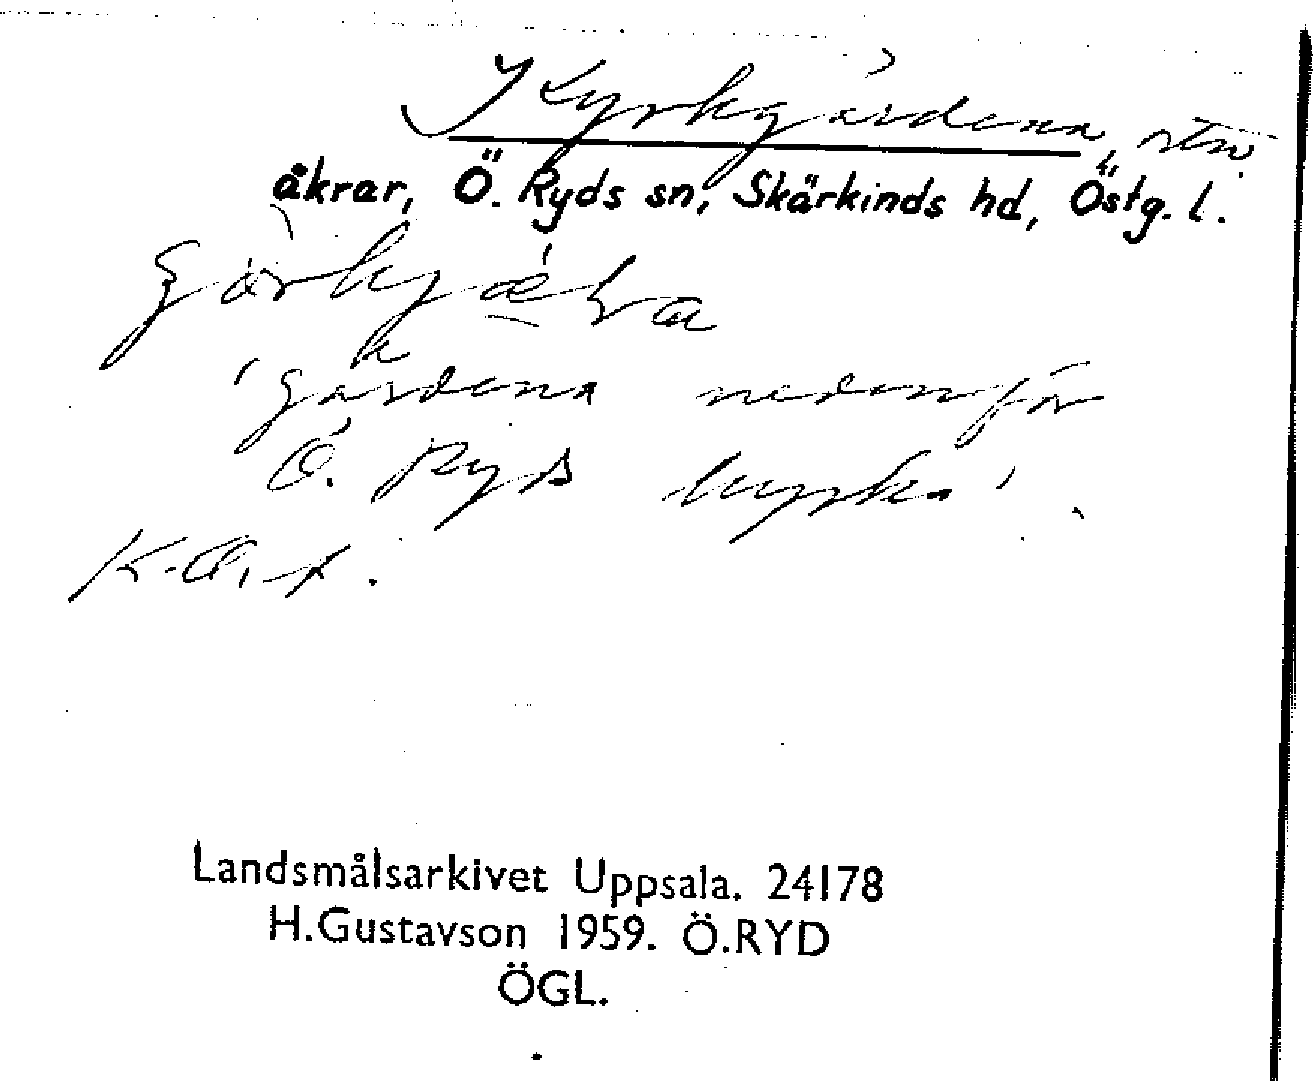 Kyrkgärdena, 
åkrar, Ö. Ryds sn, Skärkinds hd, Östg. l.
gärdena nedanför
Ö. Ryds kyrka'.
Landsmålsarkivet Uppsala. 24178
H.Gustavson 1959. Ö.RYD
ÖGL.